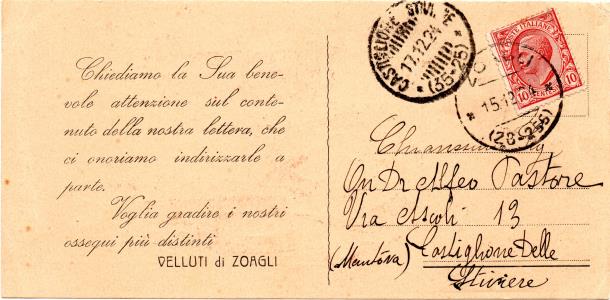 Chiediamo la Sua bene-
vole attenzione sul conte-
nuto della nostra lettera, che
ci onoriamo indirizzarle a
parte.
Voglia gradire i nostri
ossequi più distinti
VELLUTI di ZOAGLI
CASTIGLIONE STIVIERE
17.12.24
(35-25)
POSTE ITALIANE
10 CENTESIMI 10
15.12.24
(28-255)
On Dr Alfeo Pastore
Via Ascoli 13
(Mantova) Castiglione Delle
Stiviere